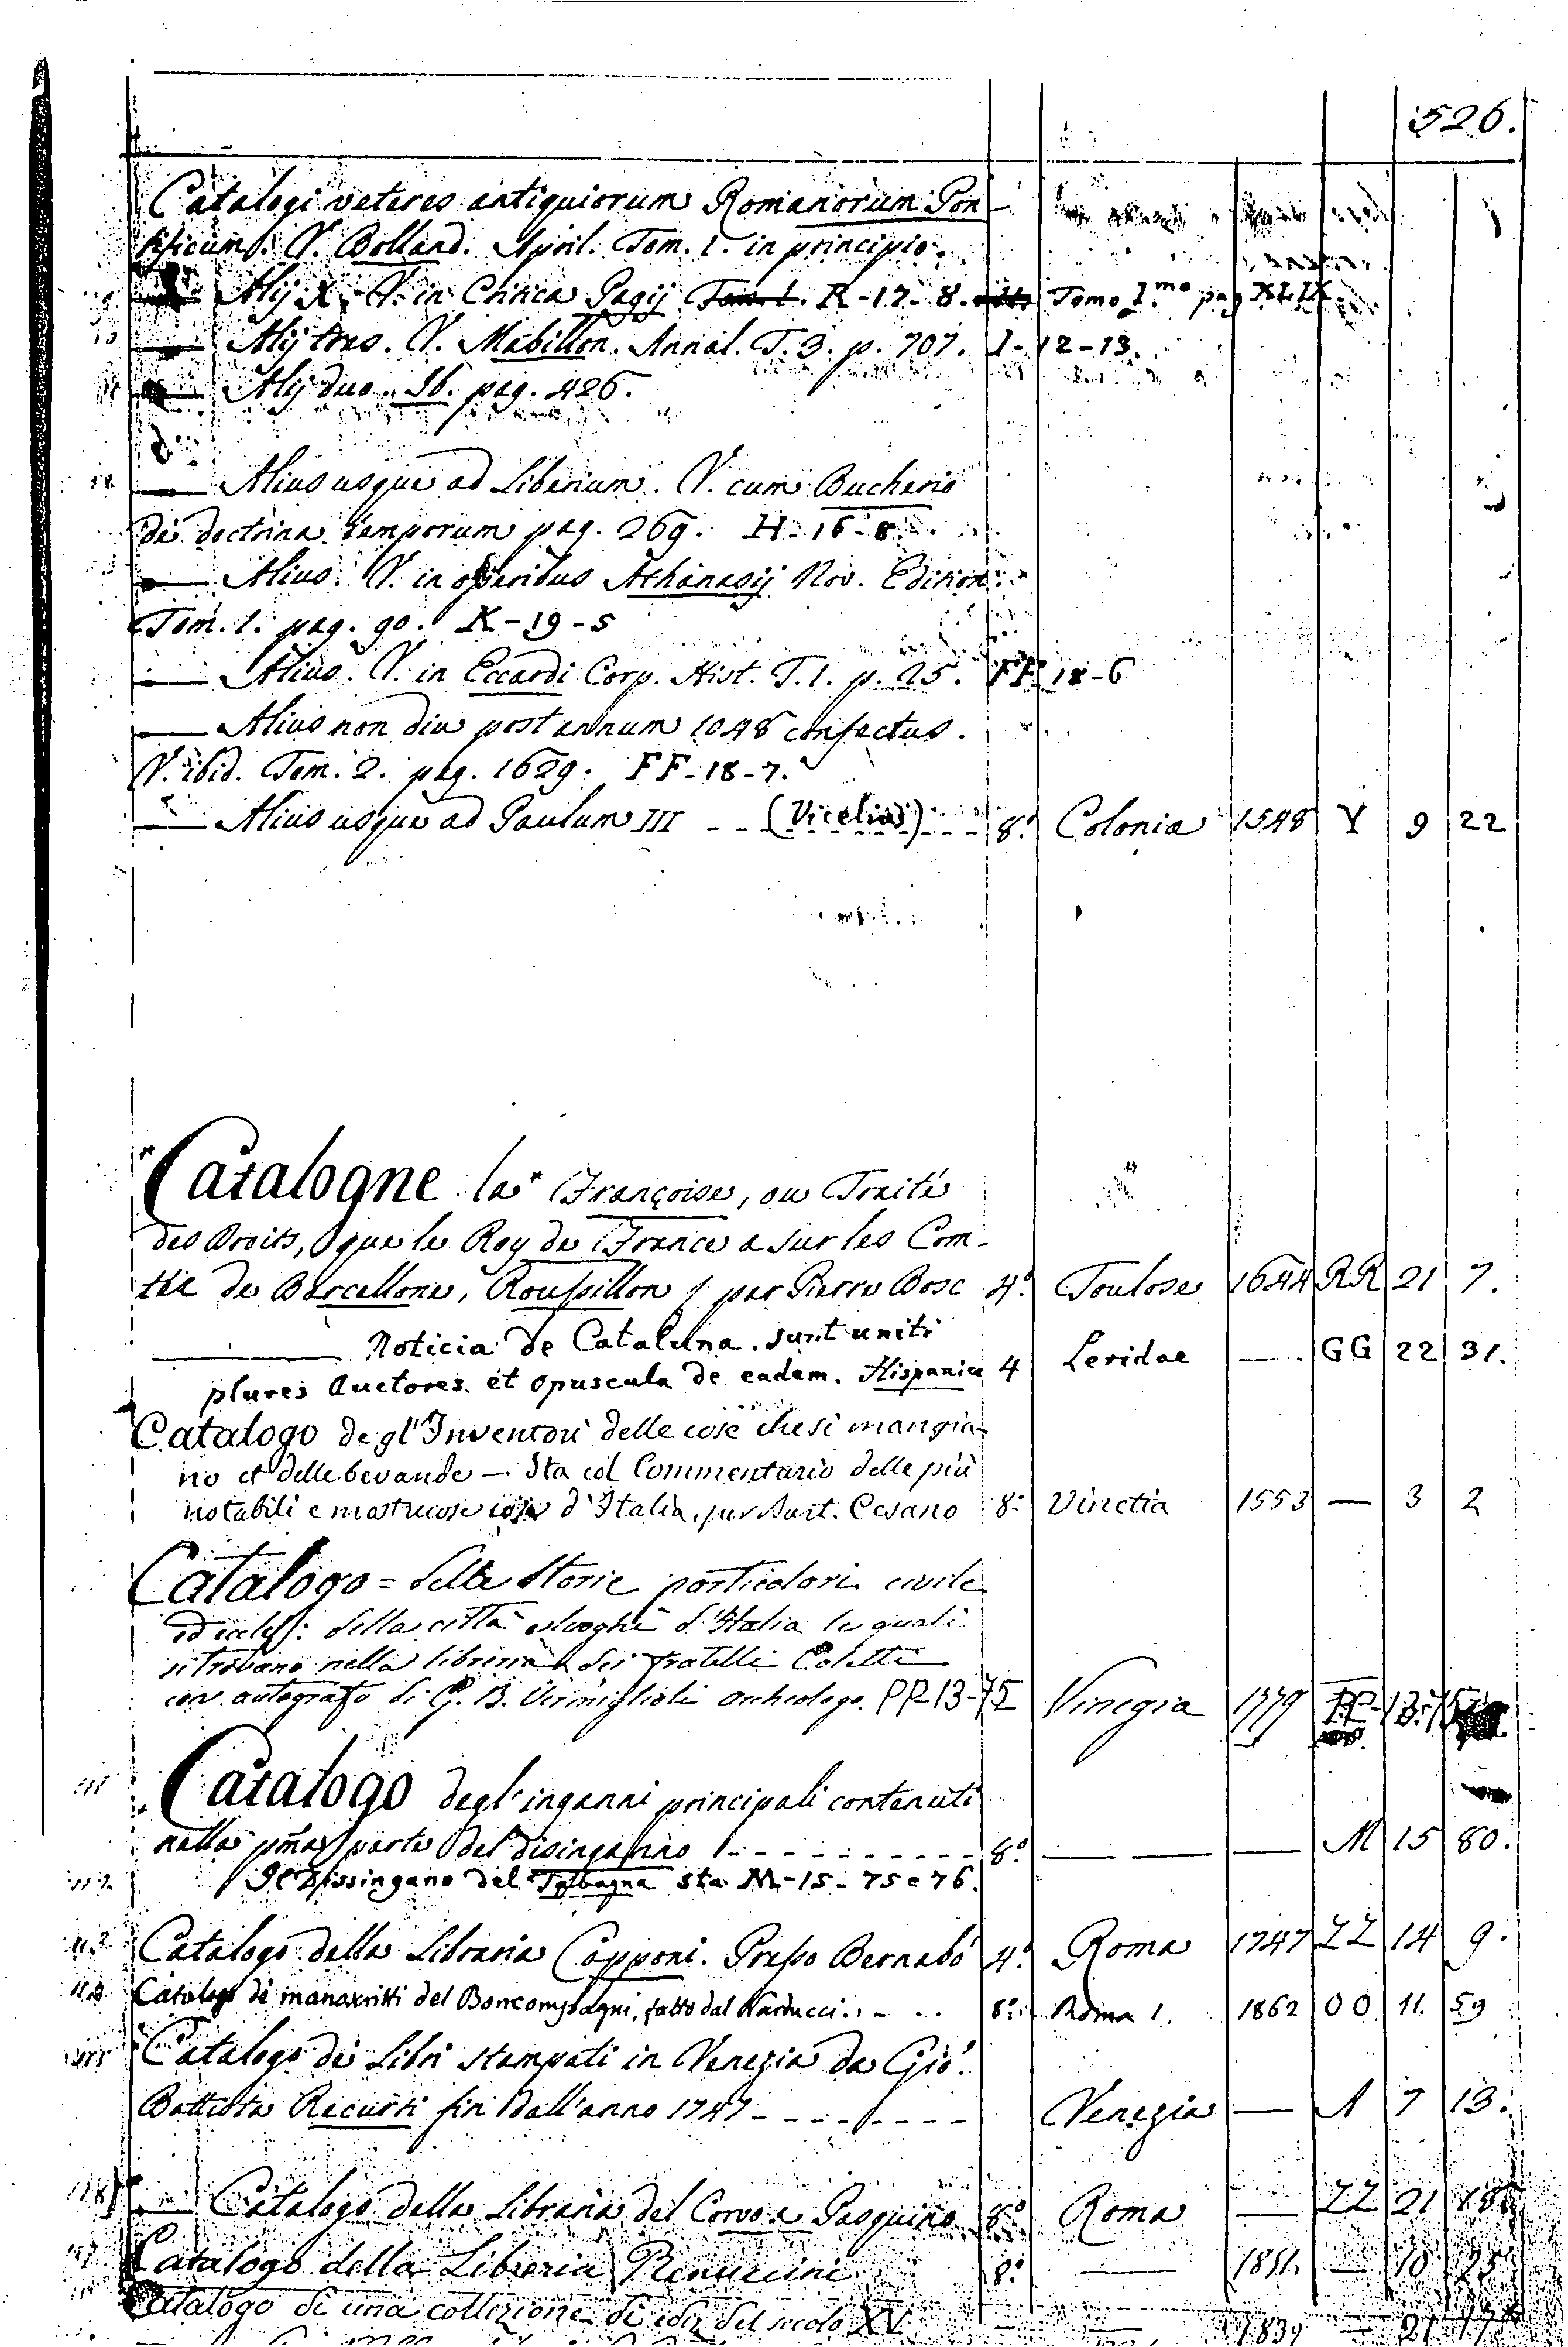 526.
Catalogi veteres antiquiorum Romanorum Pon-
tificum. V. Bolland. April. Tom. 1. in principio.
Alij X. V. in Critica Pagij Tom. 1. R-17-8. Tomo I.mo pag XLIX
Alij tres. V. Mabillon. Annal. T. 3. p. 707. I-12-13.
Alij duo. Ib. pag. 426.
Alius usque ad Liberium. V. cum Bucherio
de doctrina temporum pag. 269. H-16-8.
Alius. V. in operibus Athanasij Nov. Edition.
Tom. 1. pag. 90. K-19-5
Alius. V. in Eccardi Corp. Hist. T. 1. p. 25. FF 18-6
Alius non diu post annum 1048 confectus.
V. ibid. Tom. 2. pag. 1629. FF-18-7.
Alius usque ad Paulum III (Vicelius) 8.o Colonia 1548 Y 9 22
*Catalogne la* Françoise, ou Traité
des Droits, que le Roy de France a sur les Com-
tée de Barcellone, Roussillon / par Pierre Bosc 4.o Toulose 1644 RR 21 7.
Noticia de Cataluna. sunt uniti
plures Auctores et opuscula de eadem. Hispanice 4 Leridae — GG 22 31.
Catalogo degl'Inventori delle cose che si mangia-
no et delle bevande — Sta col Commentario delle più
notabili e mostruose cose d'Italia, per Bart. Cesano 8.o Vinetia 1553 — 3 2
Catalogo = delle Storie particolari civile
ed eccless: della città e luoghi d'Italia le quali
si trovano nella libreria dei fratelli Coletti
con autografo di G. B. Vermiglioli archeologo. PP-13-75 Vinegia 1779 PP-13-75
Catalogo degl'inganni principali contenuti
nella p̃ma parte del disinganno 8.o — — — M 15 80.
Il Dissingano del sta M-15-75 e 76.
Catalogo della Libraria Capponi. Presso Bernabò 4.o Roma 1747 ZZ 14 9.
Catalogo de manoscritti del Boncompagni, fatto dal Narducci. 8.o Roma 1. 1862 OO 11. 59
Catalogo de Libri stampati in Venezia da Gio.
Battista Recurti fin dall'anno 1747 Venezia — A 7 13.
Catalogo della Libraria del Corvo a Pasquino 8.o Roma — ZZ 21 18.
Catalogo della Libreria Rinuccini 8.o — 1851. — 10 25
Catalogo di una collezione di ediz. del secolo XV — — 1839 — 21